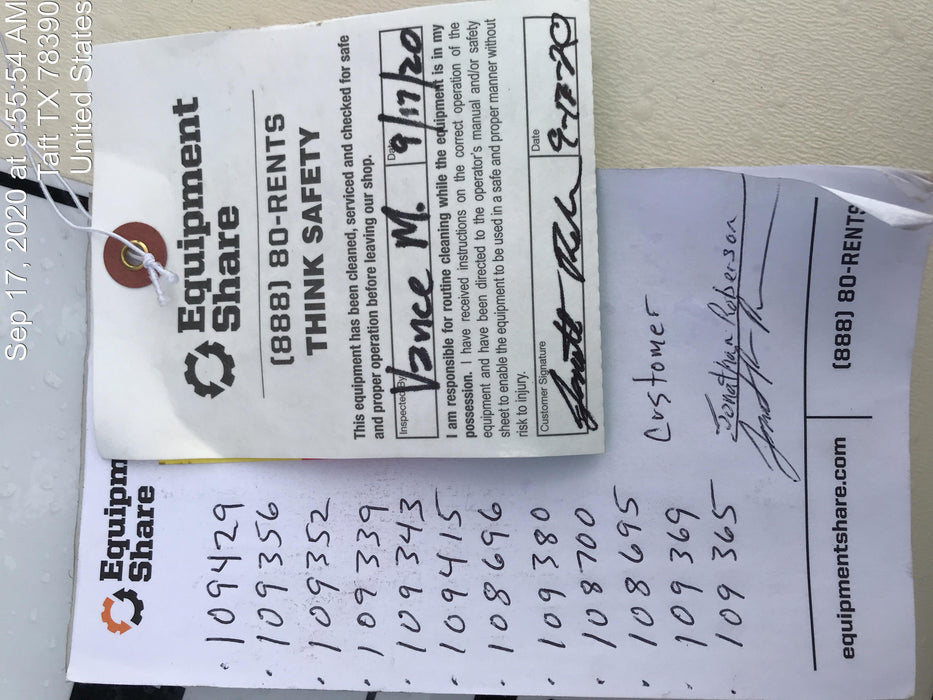 Sep 17, 2020 at 9:55:54 AM
Taft TX 78390
United States
Equipment
Share
(888) 80-RENTS
THINK SAFETY
This equipment has been cleaned, serviced and checked for safe
and proper operation before leaving our shop.
Inspected By
Date
Vance M. 9/17/20
I am responsible for routine cleaning while the equipment is in my
possession. I have received instructions on the correct operation of the
equipment and have been directed to the operator's manual and/or safety
sheet to enable the equipment to be used in a safe and proper manner without
risk to injury.
Customer Signature
Date
9-17-20
Equipm
Share
109429
109356
109352
109339
109343
109415
108696
109380
108700
108695
109369
109365
Customer
Jonathan Roberson
equipmentshare.com
(888) 80-RENTS